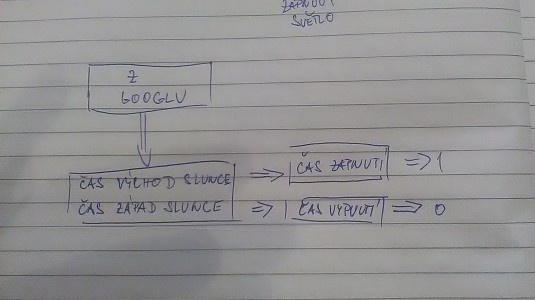 ZAPNOUT
SVĚTLO
Z
GOOGLU
ČAS VÝCHOD SLUNCE => ČAS ZAPNUTÍ => 1
ČAS ZÁPAD SLUNCE => ČAS VYPNUTÍ => 0